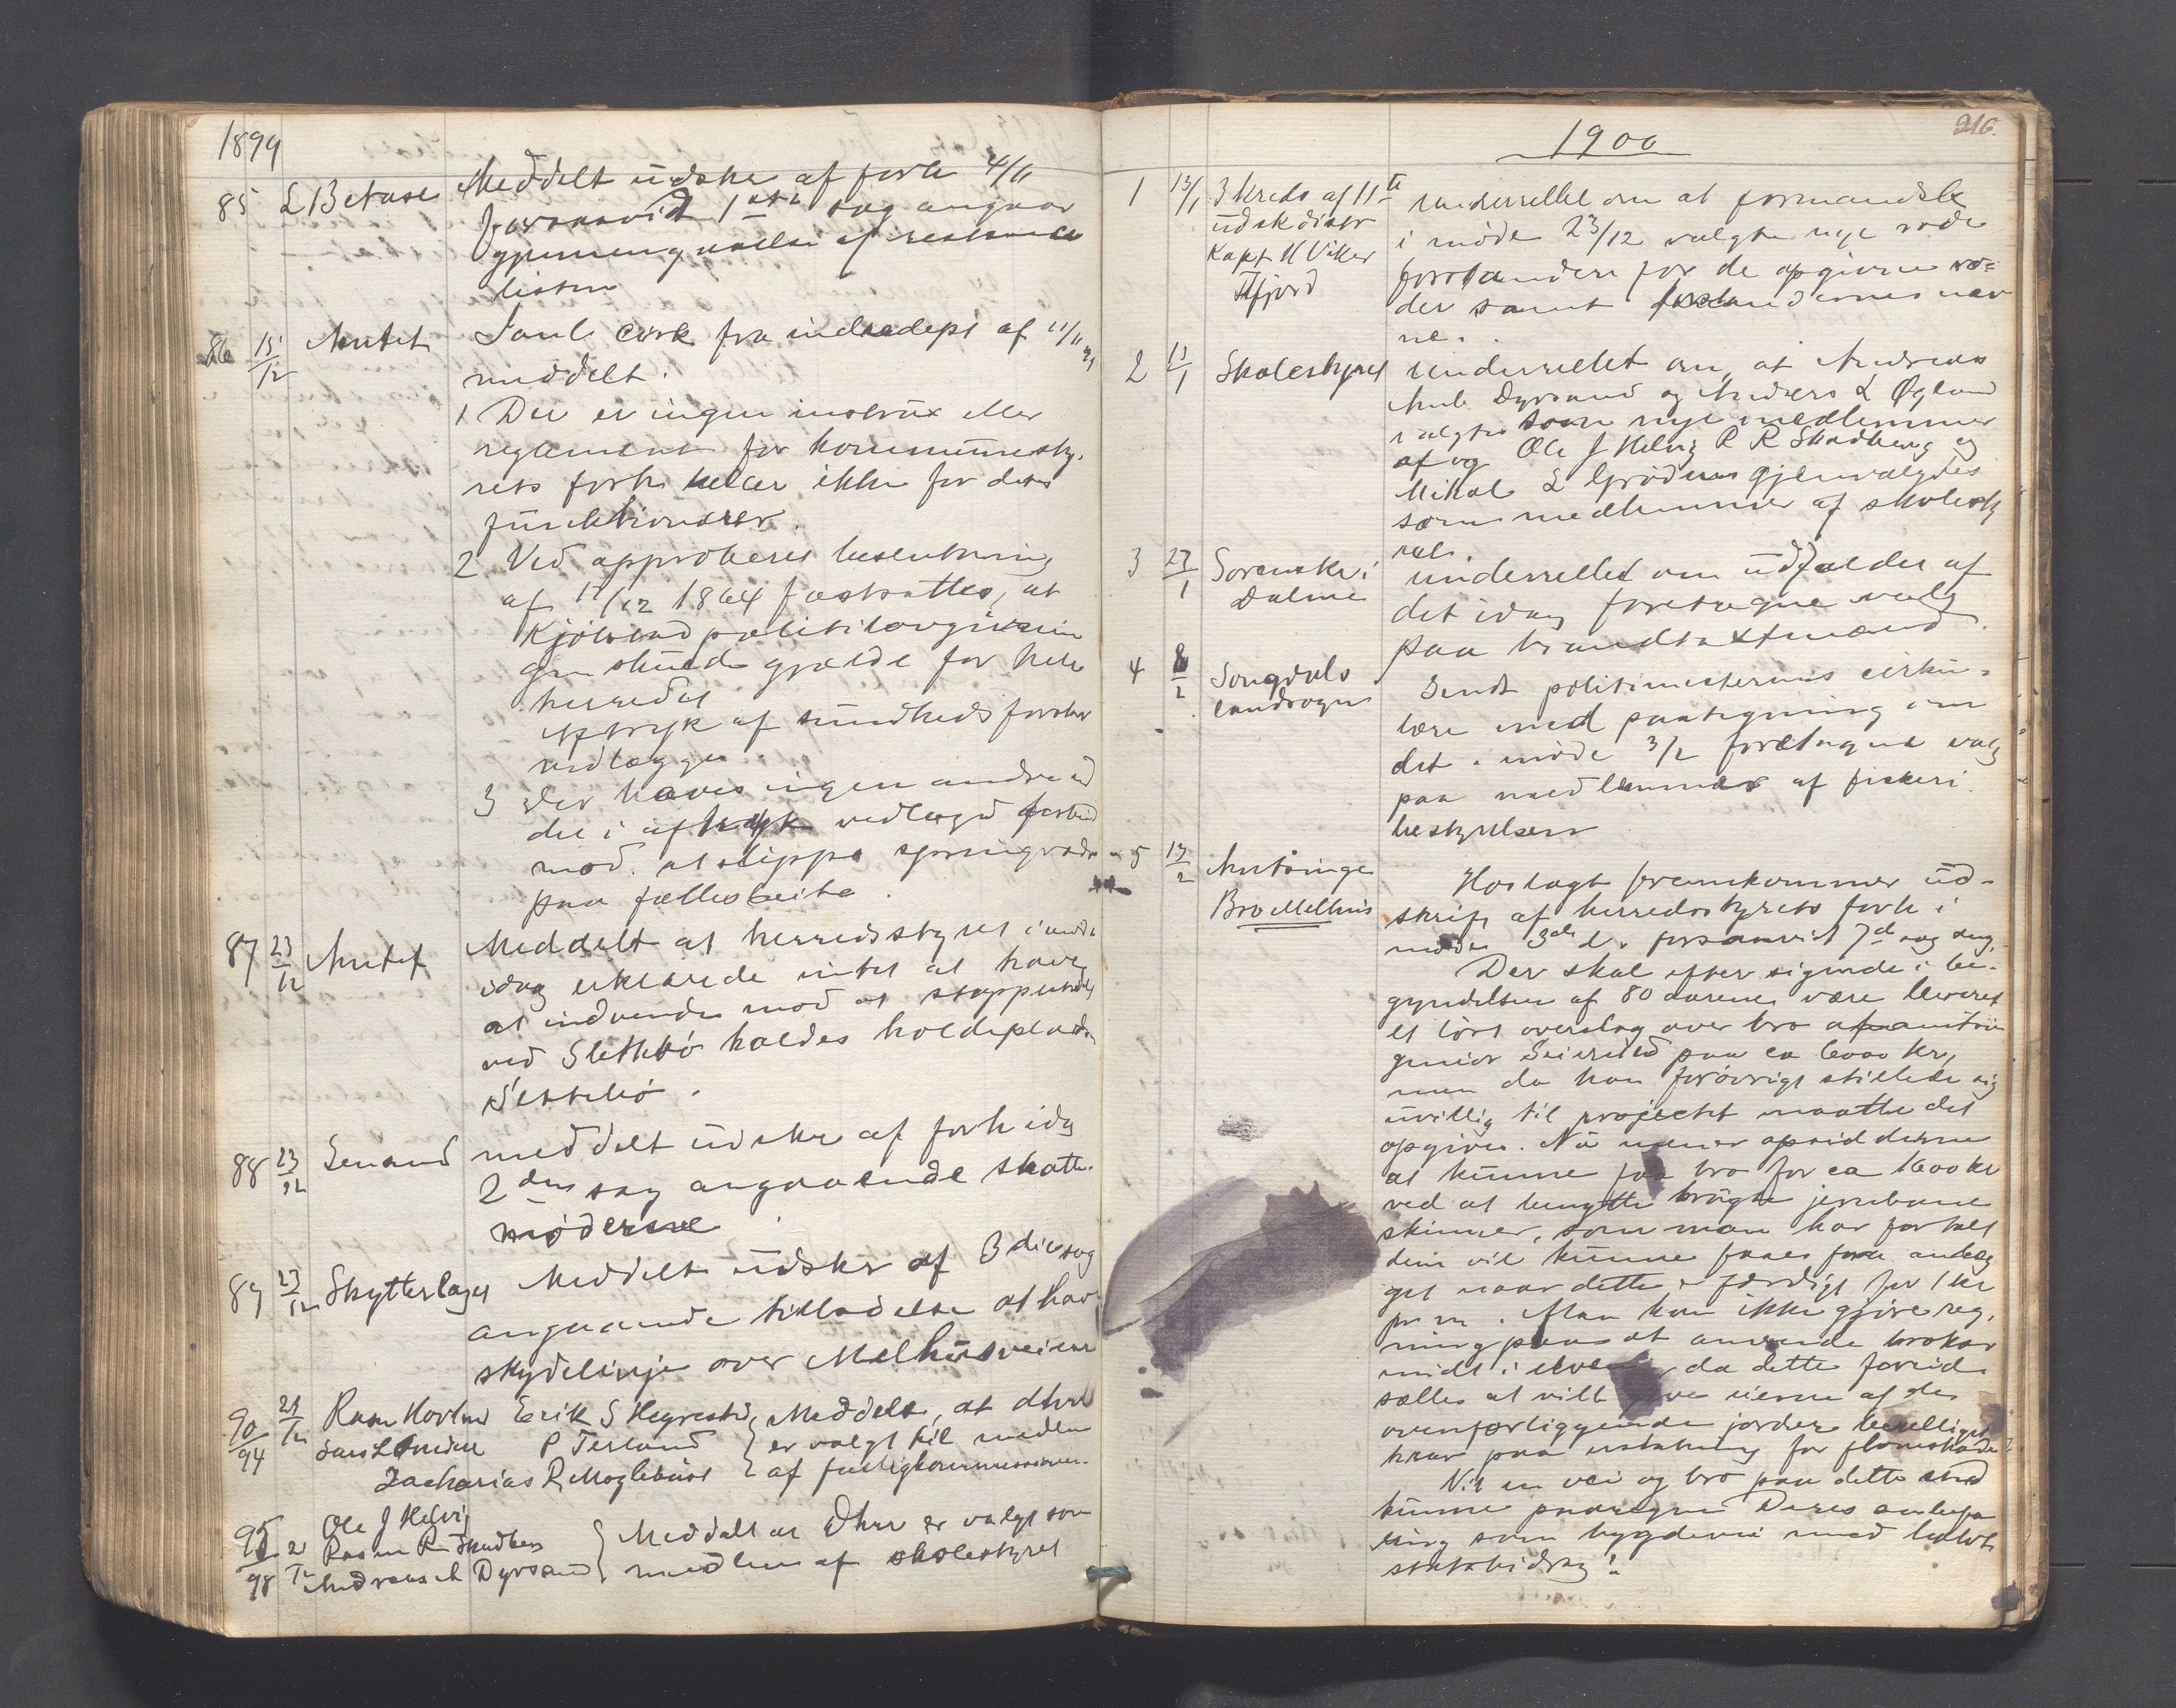 1899
85 L Betuse Meddelt udskr af forh 4/11
forsaavidt 1ste sag angaar
gjennemgaaelse af restance
listen
86 15/12 Amtet Saml cirk fra indredept af 11/11 99
meddelt.
1 Der er ingen instrux eller
reglement for kommunesty-
rets forh heller ikke for dets
funktionærer.
2 Ved approberet beslutning
af 17/12 1864 fastsattes, at
Kjöbstad politilovgivnin
gen skulde gjælde for hele
herredet
Aftryk af sundhedsforskr
vedlægges.
3 Der haves ingen andre ud
det i aftryk vedlagd forbud
mod at slippe springvæder
paa fællesbeite.
87 23/12 Amtet Meddelt at herredsstyret i møde
idag erklærede intet at have
at indvende mod at stoppested
ved Slettebö kaldes holdeplads
Slettebö.
88 23/12 Lensmd meddelt udskr af forh idg
2den sag angaaende skatte-
møderne
89 23/12 Skytterlaget Meddelt udskr af 3die sag
angaaende tilladelse at have
skydelinje over Melhusveien
90/94 29/12 Rasm Hovland Erik S Hegrestad Meddelt, at dhrr
Lars L P Tesland er valgt til medlem
Zacharias R Moglebust af fattigkommissionen.
95/98 2/12 Ole J Helvig
Rasm R Skadberg Meddelt at Dhrr er valgt som
Andreas A Dyrsand medlem af skolestyret
216.
1900
1 13/1 3 kreds af 11te underrettet om at formandsk
udsk distr i møde 23/12 valgte nye rode
Kapt U Viker forstandere for de opgivne ro-
Flfjord der samt forstandernes nav
ne.
2 13/1 Skolestyret underrettet om, at Andreas
Amb Dyrsand og Anders L Øgland
valgtes som nye medlemmer
af og Ole J Helvig R R Skadberg og
Mikal L Grødem gjenvalgtes
som medlemmer af skolesty
ret.
3 27/1 Sorenskr i underrettet om udfaldet af
Dalane det idag foretagne valg
paa brandtaxtmænd.
4 8/2 Sogndals Sendt politimesterens cirku-
landsogn lære med paategning om
det i møde 3/2 foretagne valg
paa medlemmer af fiskeri
bestyrelsen
5 19/2 Amtsinge Hoslagt fremkommer ud-
Bro Melhus skrift af herredsstyrets forh i
møde 3de ds forsaavidt 7de sag ang.
Der skal efter sigende i be-
gyndelsen af 80 aarene være leveret
et löst overslag over bro af amtsin
geniør Seierstad paa ca 6000 kr,
men da han forövrigt stillede sig
uvillig til projectet maatte det
opgives. Nu mener opsidderne
at kunne faa bro for ca 1600 kr
ved at benytte brugte jernbane
skinner, som man har fortalt
dem vil kunne faaes fra anlæg
get naar dette er færdigt for 1 kr
pr m. Man kan ikke gjöre reg-
ning paa at anvende brokar
midt i elven da dette forud-
sættes at ville give eierne af de
ovenforliggende jorder berettiget
krav paa erstatning for flomskade.
Vil en vei og bro paa dette sted
kunne paaregne Deres anbefa
ling som bygdevei med halvt
statsbidrag?